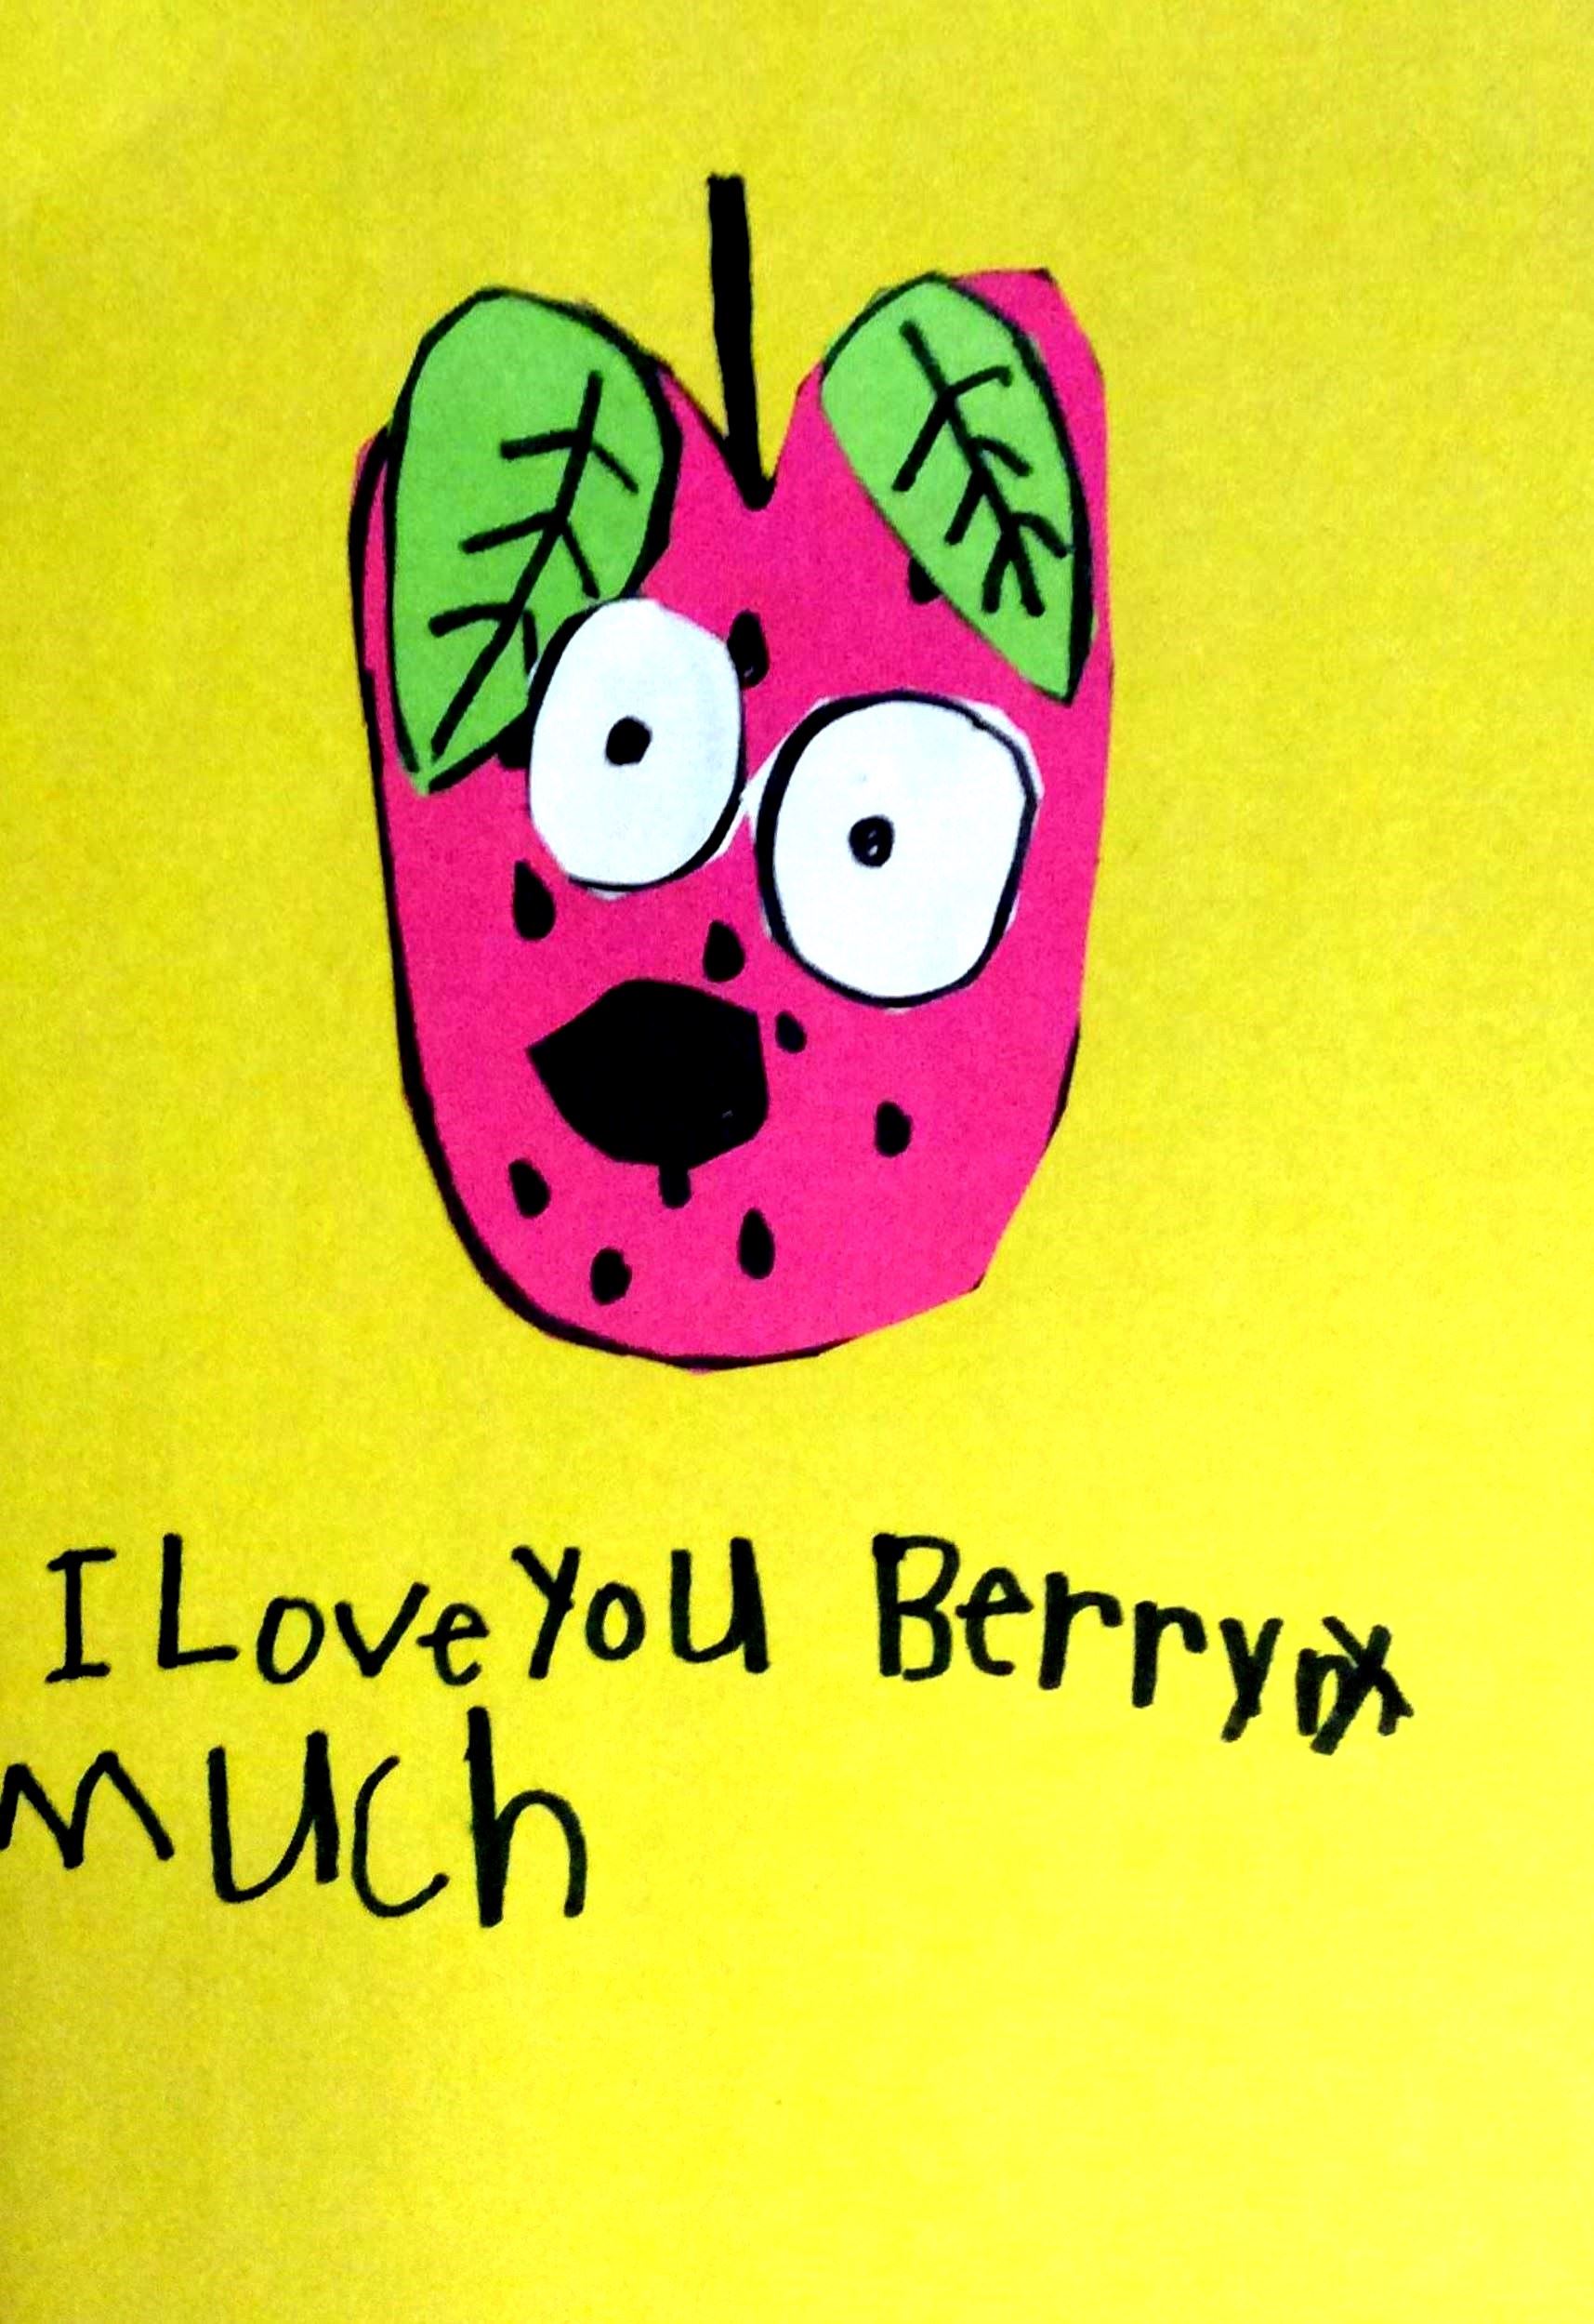 I Love You Berry
much